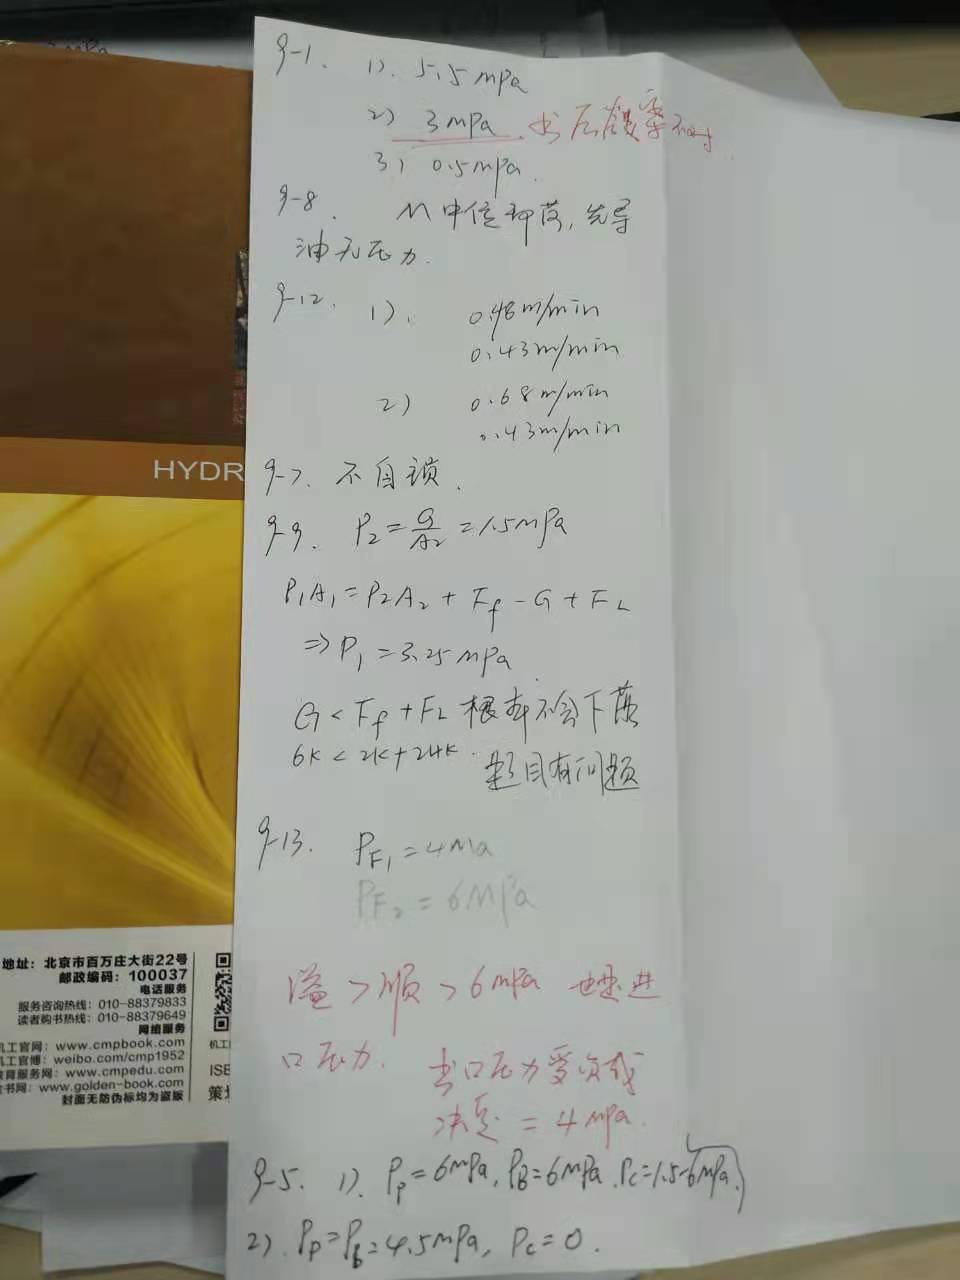 9-1. 1). 5.5mpa
2) 3mpa. 书后答案不对.
3) 0.5mpa.
9-8. M中位卸荷, 先导
油无压力.
9-12. 1). 0.48m/min
0.43m/min
2) 0.68m/min
0.43m/min
9-7. 不自锁.
9-9. P2=G/A2=1.5mPa
P1A1=P2A2+Ff-G+FL
⇒P1=3.25mPa
G<Ff+FL 根本不会下落
6K<2K+24K. 题目有问题
9-13. PF1=4Ma
PF2=6MPa
溢>顺>6mpa 也是进
口压力. 出口压力受负载
决定=4mpa.
9-5. 1). Pp=6mPa, PB=6mPa. Pc=1.5-6mPa.
2). Pp=PB=4.5mPa, Pc=0.
HYDR
地址：北京市百万庄大街22号
邮政编码：100037
电话服务
服务咨询热线：010-88379833
读者购书热线：010-88379649
网络服务
机工官网：www.cmpbook.com
机工官博：weibo.com/cmp1952
教育服务网：www.cmpedu.com
金书网：www.golden-book.com
封面无防伪标均为盗版
机工
ISB
策划